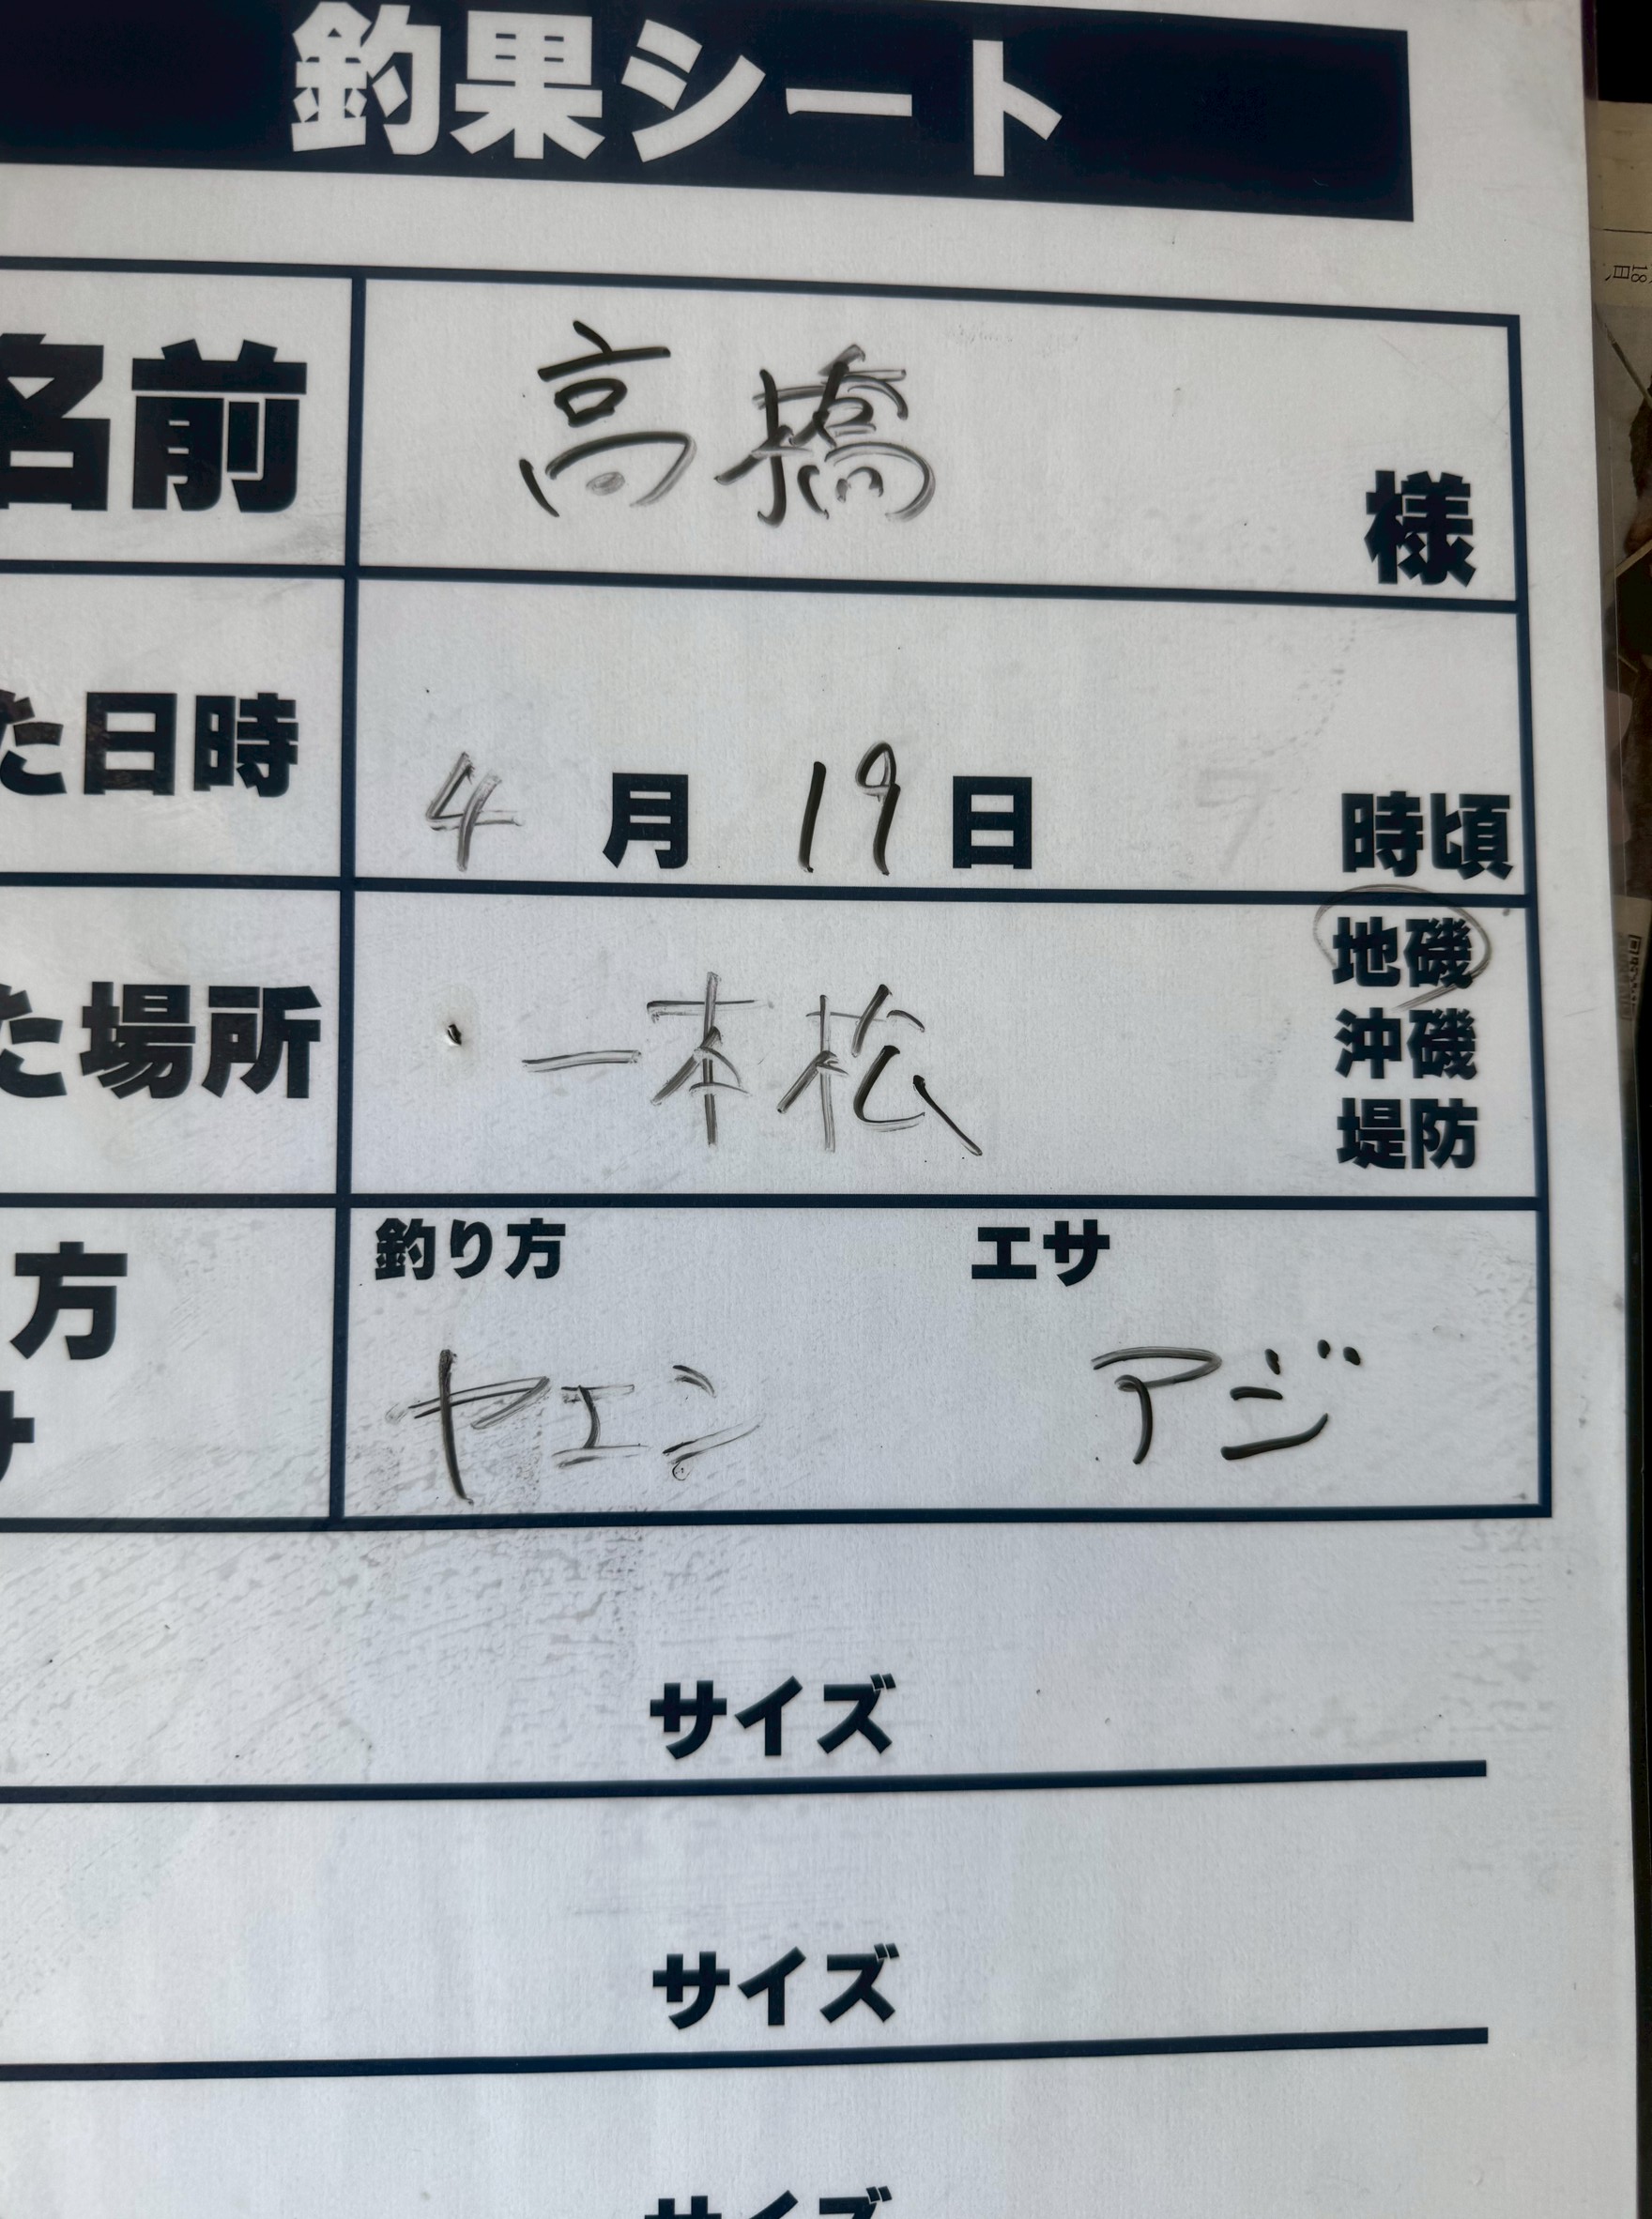 釣果シート
名前 高橋 様
た日時 4月19日 時頃
た場所 一本松 地磯
沖磯
堤防
方 釣り方 エサ
サ ヤエン アジ
サイズ
サイズ
サイズ